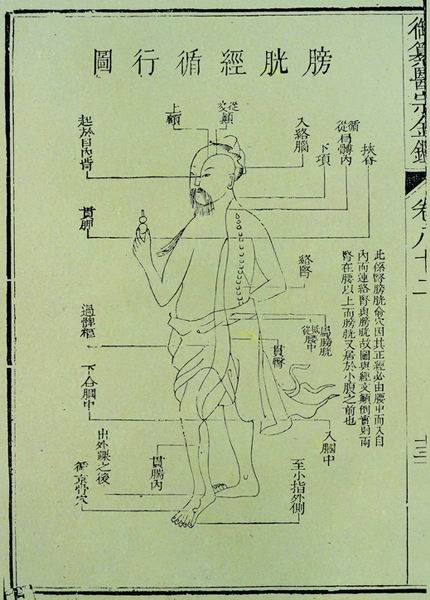 御纂醫宗金鑑
卷八十二
十三
膀胱經循行圖
挾脊
循肩髆內
下項
入絡腦
交巔
上額
起於目內眥
貫胛
此係腎膀胱俞穴因其正經必由腰中而入自
內而連絡腎與膀胱故圖與經文顛倒實則兩
腎在腰以上而膀胱又居於小腹之前也
絡腎
屬膀胱
抵腰中
貫臀
過髀樞
下合膕中
入膕中
至小指外側
貫腨內
出外踝之後
循京骨穴